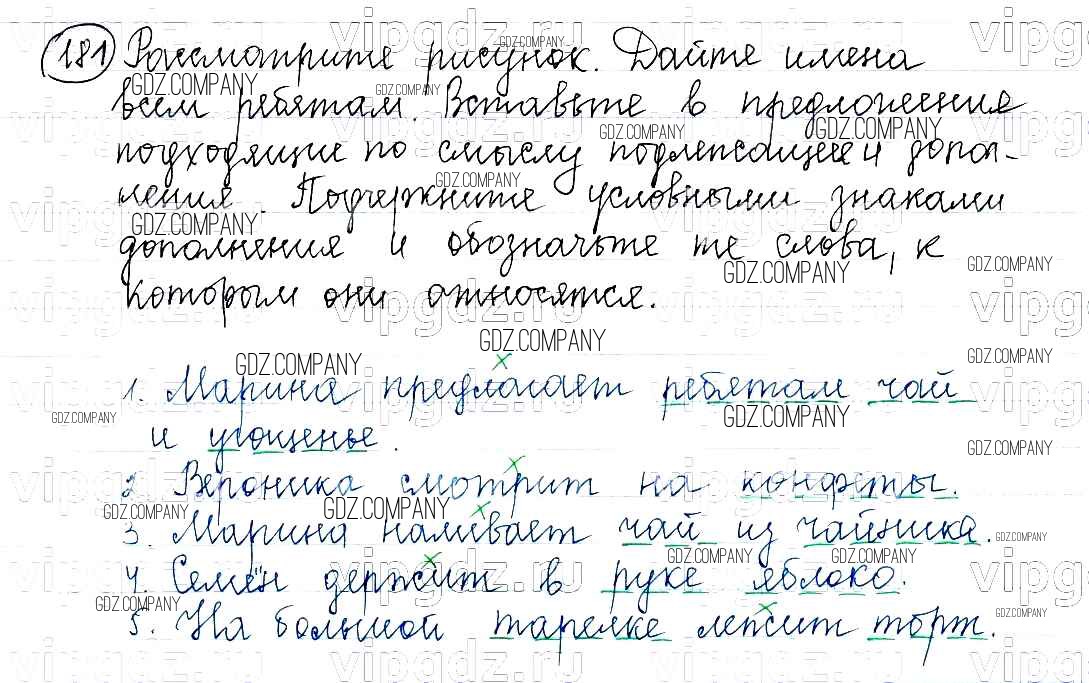 181 Рассмотрите рисунок. Дайте имена
всем ребятам. Вставьте в предложения
подходящие по смыслу подлежащее и допол-
нения. Подчеркните условными знаками
дополнения и обозначьте те слова, к
которым они относятся.
1. Марина предлагает ребятам чай
и угощенье.
2. Вероника смотрит на конфеты.
3. Марина наливает чай из чайника.
4. Семён держит в руке яблоко.
5. На большой тарелке лежит торт.
GDZ.COMPANY
vipgdz.ru